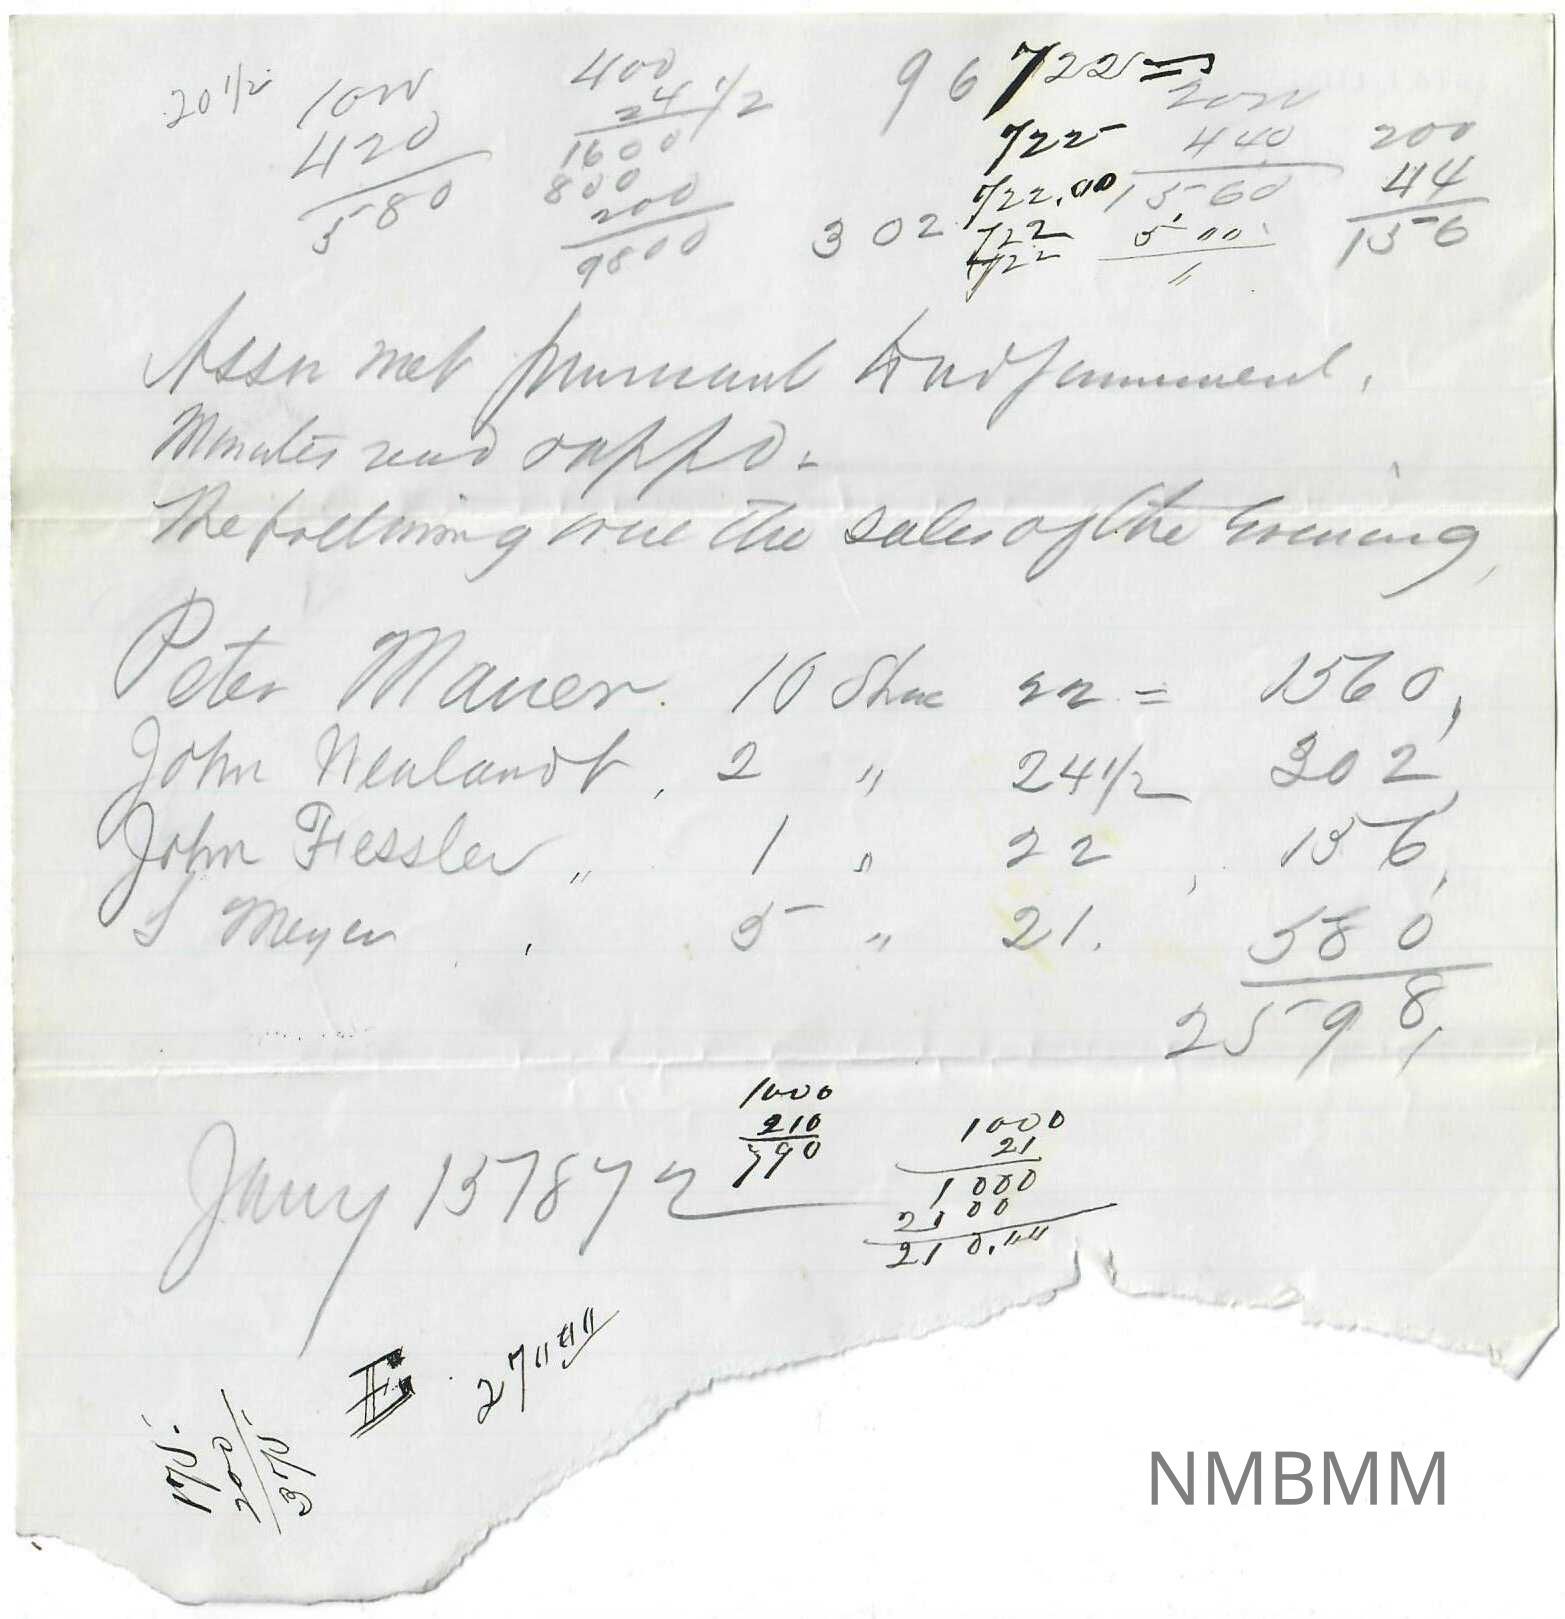 20 1/2 1000 400 96 722
420 24 1/2 722 2000 200
580 1600 722.00 440 44
800 302 722 1560 156
200 722 5"00
9800
Assn met pursuant to adjournment.
Minutes read & appd.
The following were the sales of the Evening,
Peter Mauer. 10 Share 22 = 1560,
John Neulandt, 2 " 24 1/2 302,
John Fessler " 1 " 22, 156,
S Meyer 5 " 21. 580
2598,
Jany 15 1872
1000
210
790
1000
21
1000
2000
210.""
E 27""
175.
200
375
NMBMM